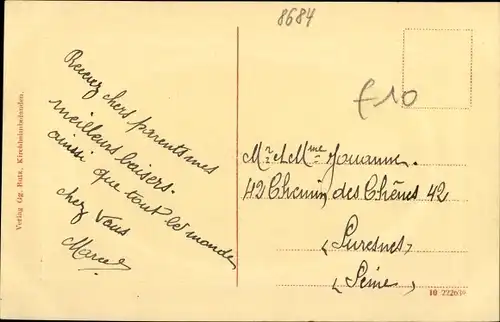 8684
£10
Recevez chers parents mes
meilleurs baisers.
ainsi que tout le monde
chez Vous
Marcel
Mr et Mme Jouanne.
42 Chemin des Chênes 42
(Suresnes)
(Seine)
Verlag Gg. Rutz, Kirchheimbolanden.
10 22263